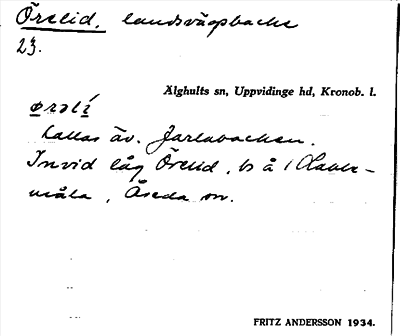 Örelid, landsvägsbacke
23.
Älghults sn, Uppvidinge hd, Kronob. l.
ørəlí
Kallas äv. Jarlabacken.
Invid låg Örelid, bs å
måla, Åseda sn.
FRITZ ANDERSSON 1934.